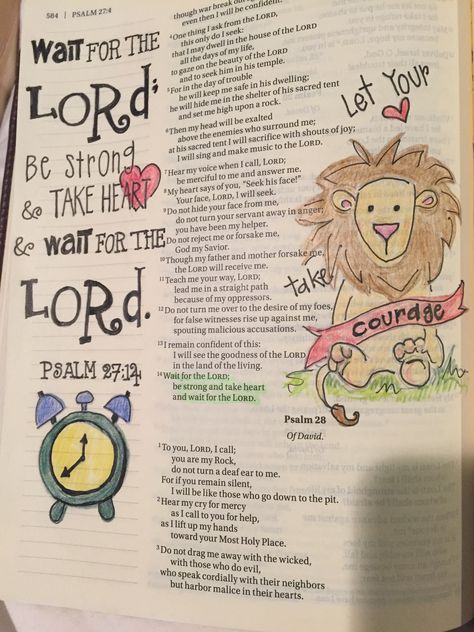 584 | PSALM 27:4
Wait FOR THE
LORd;
Be strong
& TAKE HEART
& wait FOR THE
LORd.
PSALM 27:14
though war break out
even then I will be confident.
4 One thing I ask from the LORD,
this only do I seek:
that I may dwell in the house of the LORD
all the days of my life,
to gaze on the beauty of the LORD
and to seek him in his temple.
5 For in the day of trouble
he will keep me safe in his dwelling;
he will hide me in the shelter of his sacred tent
and set me high upon a rock.
6 Then my head will be exalted
above the enemies who surround me;
at his sacred tent I will sacrifice with shouts of joy;
I will sing and make music to the LORD.
7 Hear my voice when I call, LORD;
be merciful to me and answer me.
8 My heart says of you, "Seek his face!"
Your face, LORD, I will seek.
9 Do not hide your face from me,
do not turn your servant away in anger;
you have been my helper.
Do not reject me or forsake me,
God my Savior.
10 Though my father and mother forsake me,
the LORD will receive me.
11 Teach me your way, LORD;
lead me in a straight path
because of my oppressors.
12 Do not turn me over to the desire of my foes,
for false witnesses rise up against me,
spouting malicious accusations.
13 I remain confident of this:
I will see the goodness of the LORD
in the land of the living.
14 Wait for the LORD;
be strong and take heart
and wait for the LORD.
Psalm 28
Of David.
1 To you, LORD, I call;
you are my Rock,
do not turn a deaf ear to me.
For if you remain silent,
I will be like those who go down to the pit.
2 Hear my cry for mercy
as I call to you for help,
as I lift up my hands
toward your Most Holy Place.
3 Do not drag me away with the wicked,
with those who do evil,
who speak cordially with their neighbors
but harbor malice in their hearts.
Let Your
take
courage